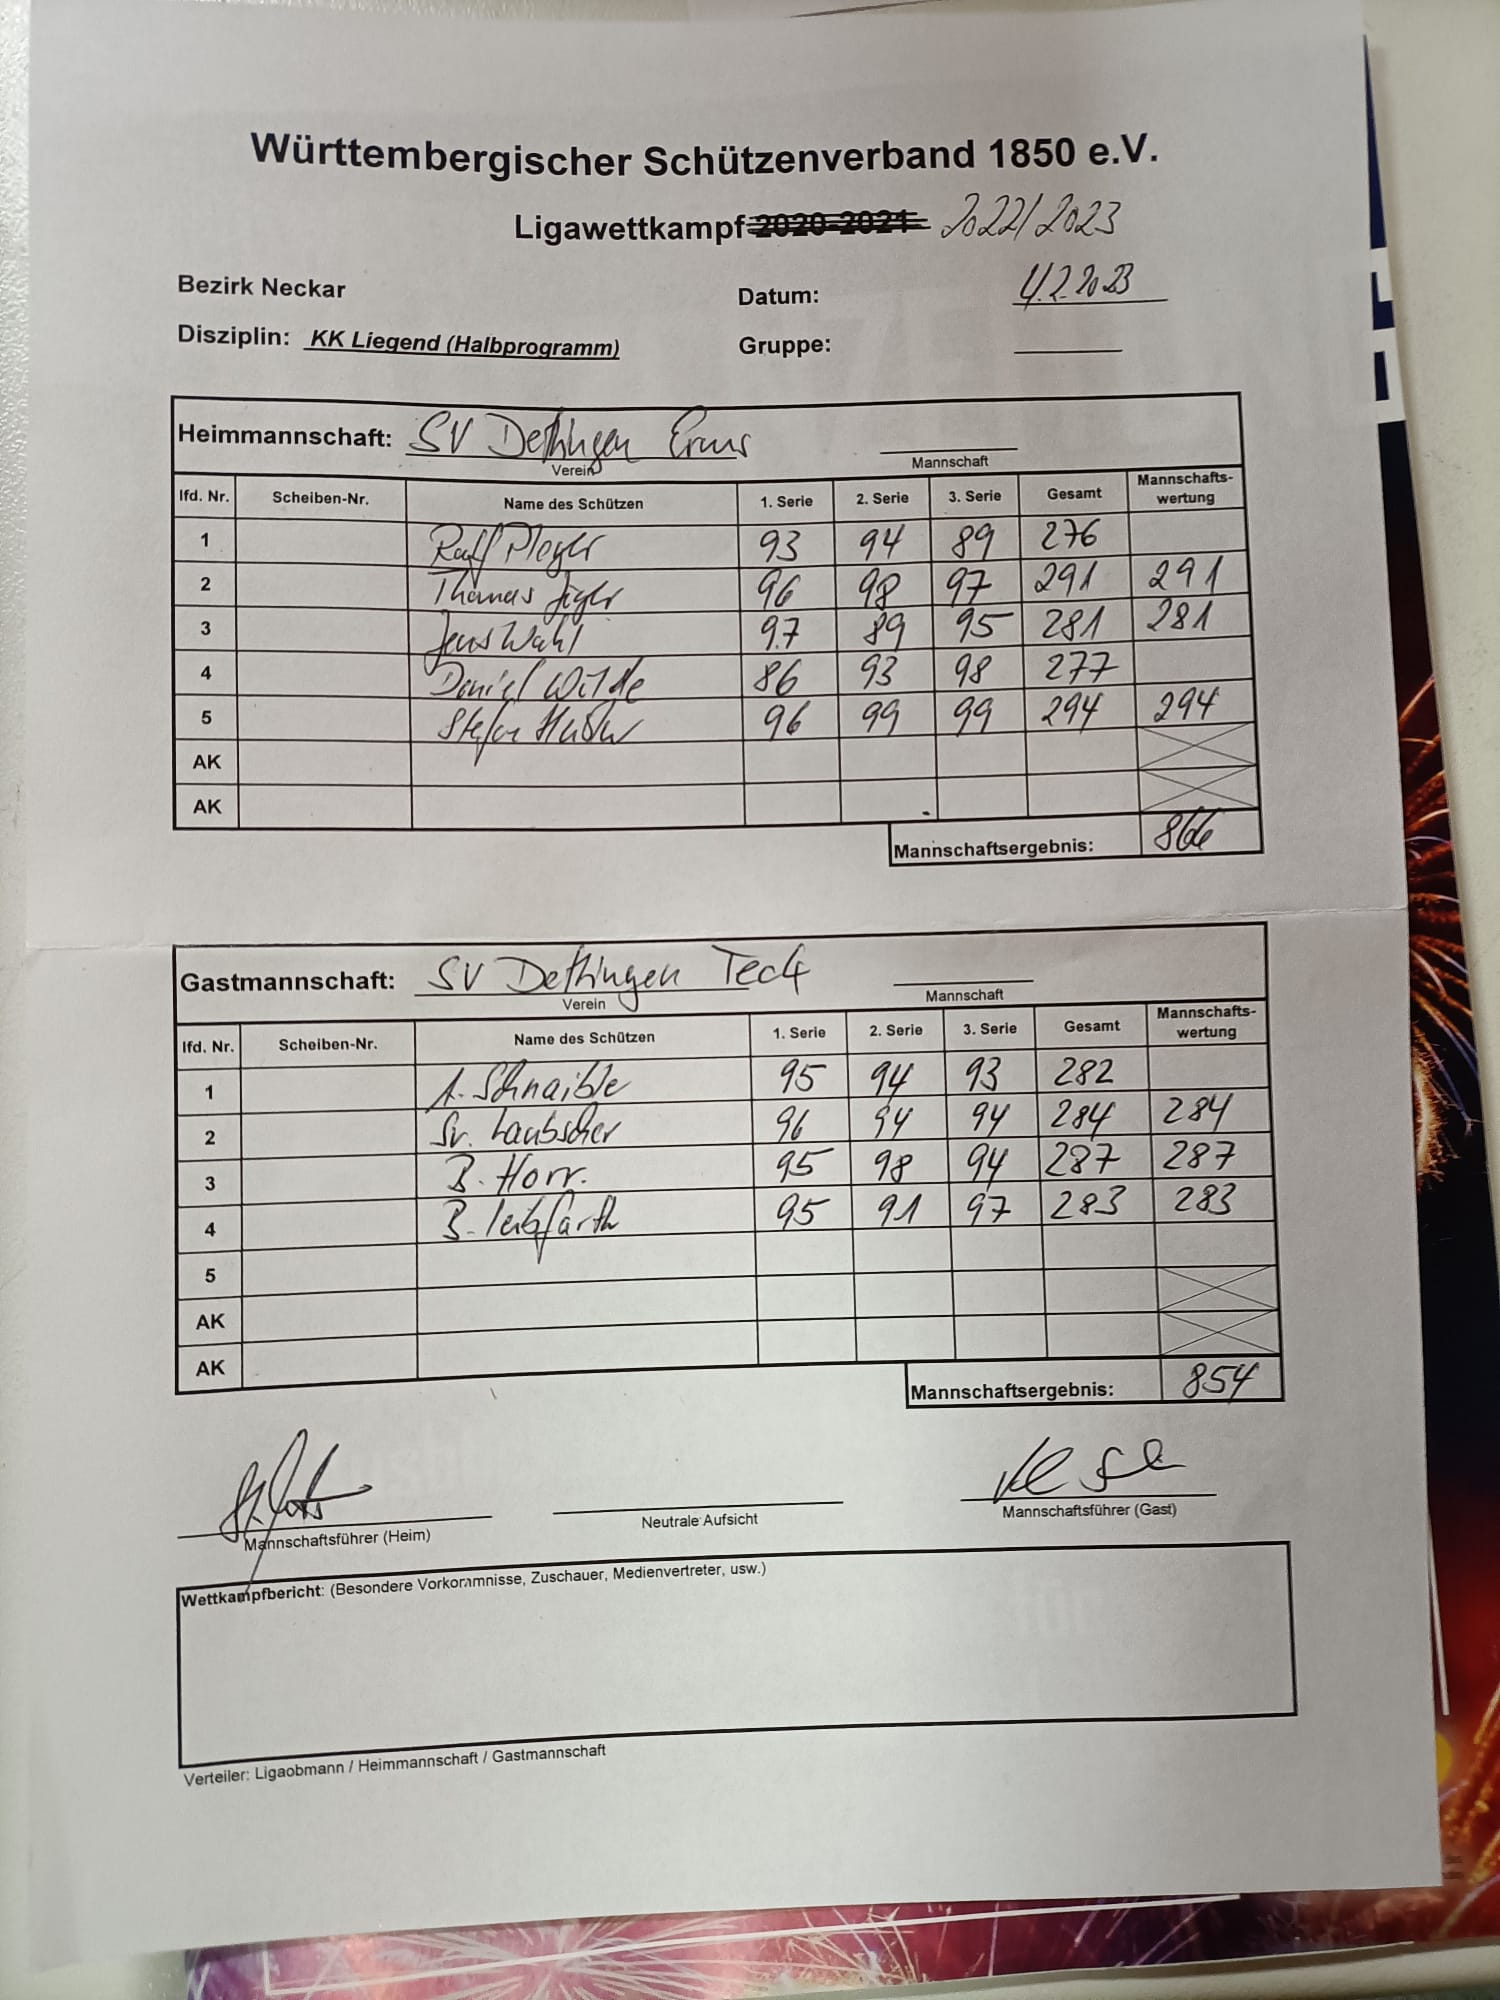 Württembergischer Schützenverband 1850 e.V.
Ligawettkampf 2020-2021 2022/2023
Bezirk Neckar Datum: 4.2.2023
Disziplin: KK Liegend (Halbprogramm) Gruppe:
Heimmannschaft: SV Dettingen Erms
Verein Mannschaft
lfd. Nr. Scheiben-Nr. Name des Schützen 1. Serie 2. Serie 3. Serie Gesamt Mannschafts-wertung
1 Ralf Pleger 93 94 89 276
2 Thomas 96 98 97 291 291
3 Jens Wahl 97 89 95 281 281
4 Daniel Wilde 86 93 98 277
5 Stefan 96 99 99 294 294
AK
AK
Mannschaftsergebnis: 866
Gastmannschaft: SV Dettingen Teck
Verein Mannschaft
lfd. Nr. Scheiben-Nr. Name des Schützen 1. Serie 2. Serie 3. Serie Gesamt Mannschafts-wertung
1 A. Schnaible 95 94 93 282
2 Sv. Laubscher 96 94 94 284 284
3 B. Horr. 95 98 94 287 287
4 B. Leibfarth 95 91 97 283 283
5
AK
AK
Mannschaftsergebnis: 854
Mannschaftsführer (Heim) Neutrale Aufsicht Mannschaftsführer (Gast)
Wettkampfbericht: (Besondere Vorkommnisse, Zuschauer, Medienvertreter, usw.)
Verteiler: Ligaobmann / Heimmannschaft / Gastmannschaft